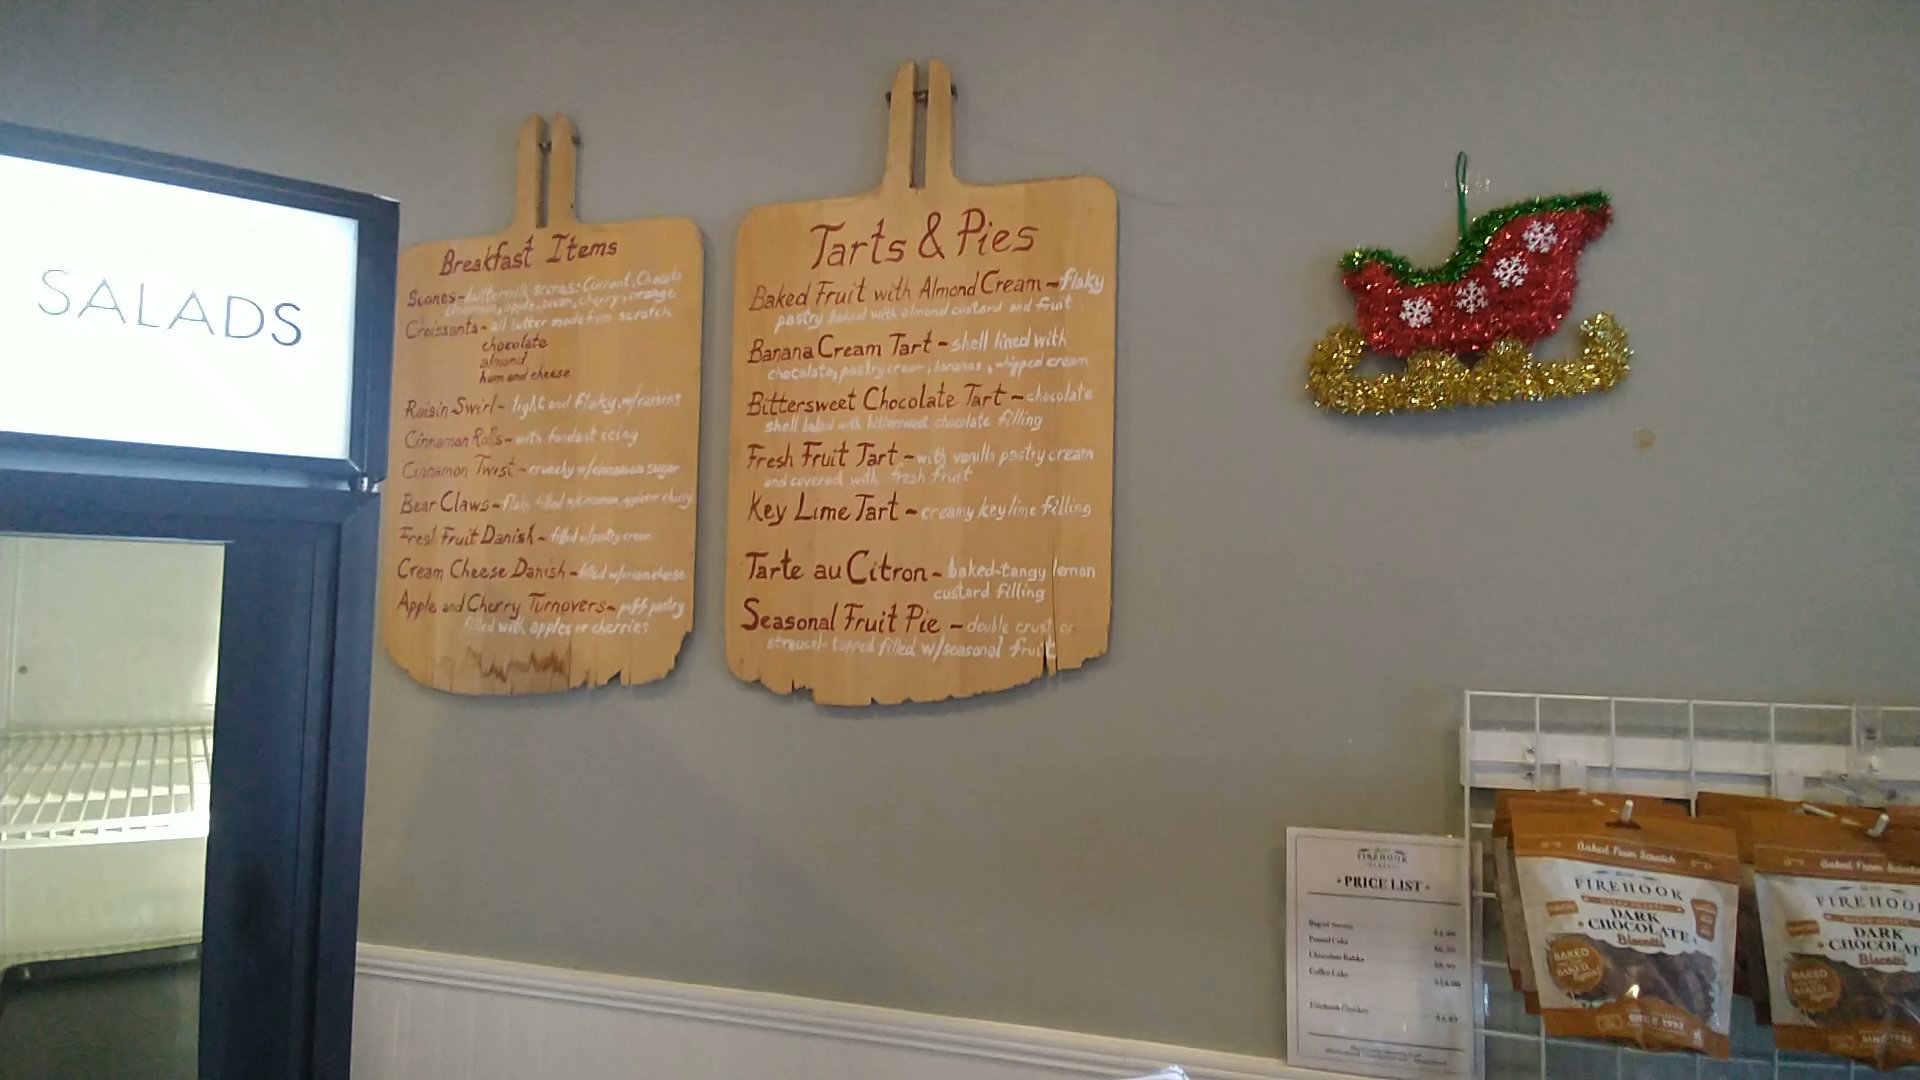 SALADS
Breakfast Items
Scones - buttermilk scones: Currant, Chocolate
cinnamon, apple, pecan, cherry, orange
Croissants - all butter made from scratch
chocolate
almond
ham and cheese
Raisin Swirl - light and flaky, w/raisins
Cinnamon Rolls - with fondant icing
Cinnamon Twist - crunchy w/cinnamon sugar
Bear Claws - flaky filled w/cinnamon apple or cherry
Fresh Fruit Danish - filled w/pastry cream
Cream Cheese Danish - filled w/cream cheese
Apple and Cherry Turnovers - puff pastry
filled with apples or cherries
Tarts & Pies
Baked Fruit with Almond Cream - flaky
pastry baked with almond custard and fruit
Banana Cream Tart - shell lined with
chocolate, pastry cream, bananas, whipped cream
Bittersweet Chocolate Tart - chocolate
shell baked with bittersweet chocolate filling
Fresh Fruit Tart - with vanilla pastry cream
and covered with fresh fruit
Key Lime Tart - creamy key lime filling
Tarte au Citron - baked-tangy lemon
custard filling
Seasonal Fruit Pie - double crust or
streusel-topped filled w/seasonal fruit
FIREHOOK
PRICE LIST
Pound Cake
Chocolate Babka
Coffee Cake
Firehook Cracker
Baked From Scratch
FIREHOOK
DARK
CHOCOLATE
Biscotti
BAKED
SINCE 1992
Baked From Scratch
FIREHOOK
DARK
CHOCOLAT
Biscotti
BAKED
SINCE 1992